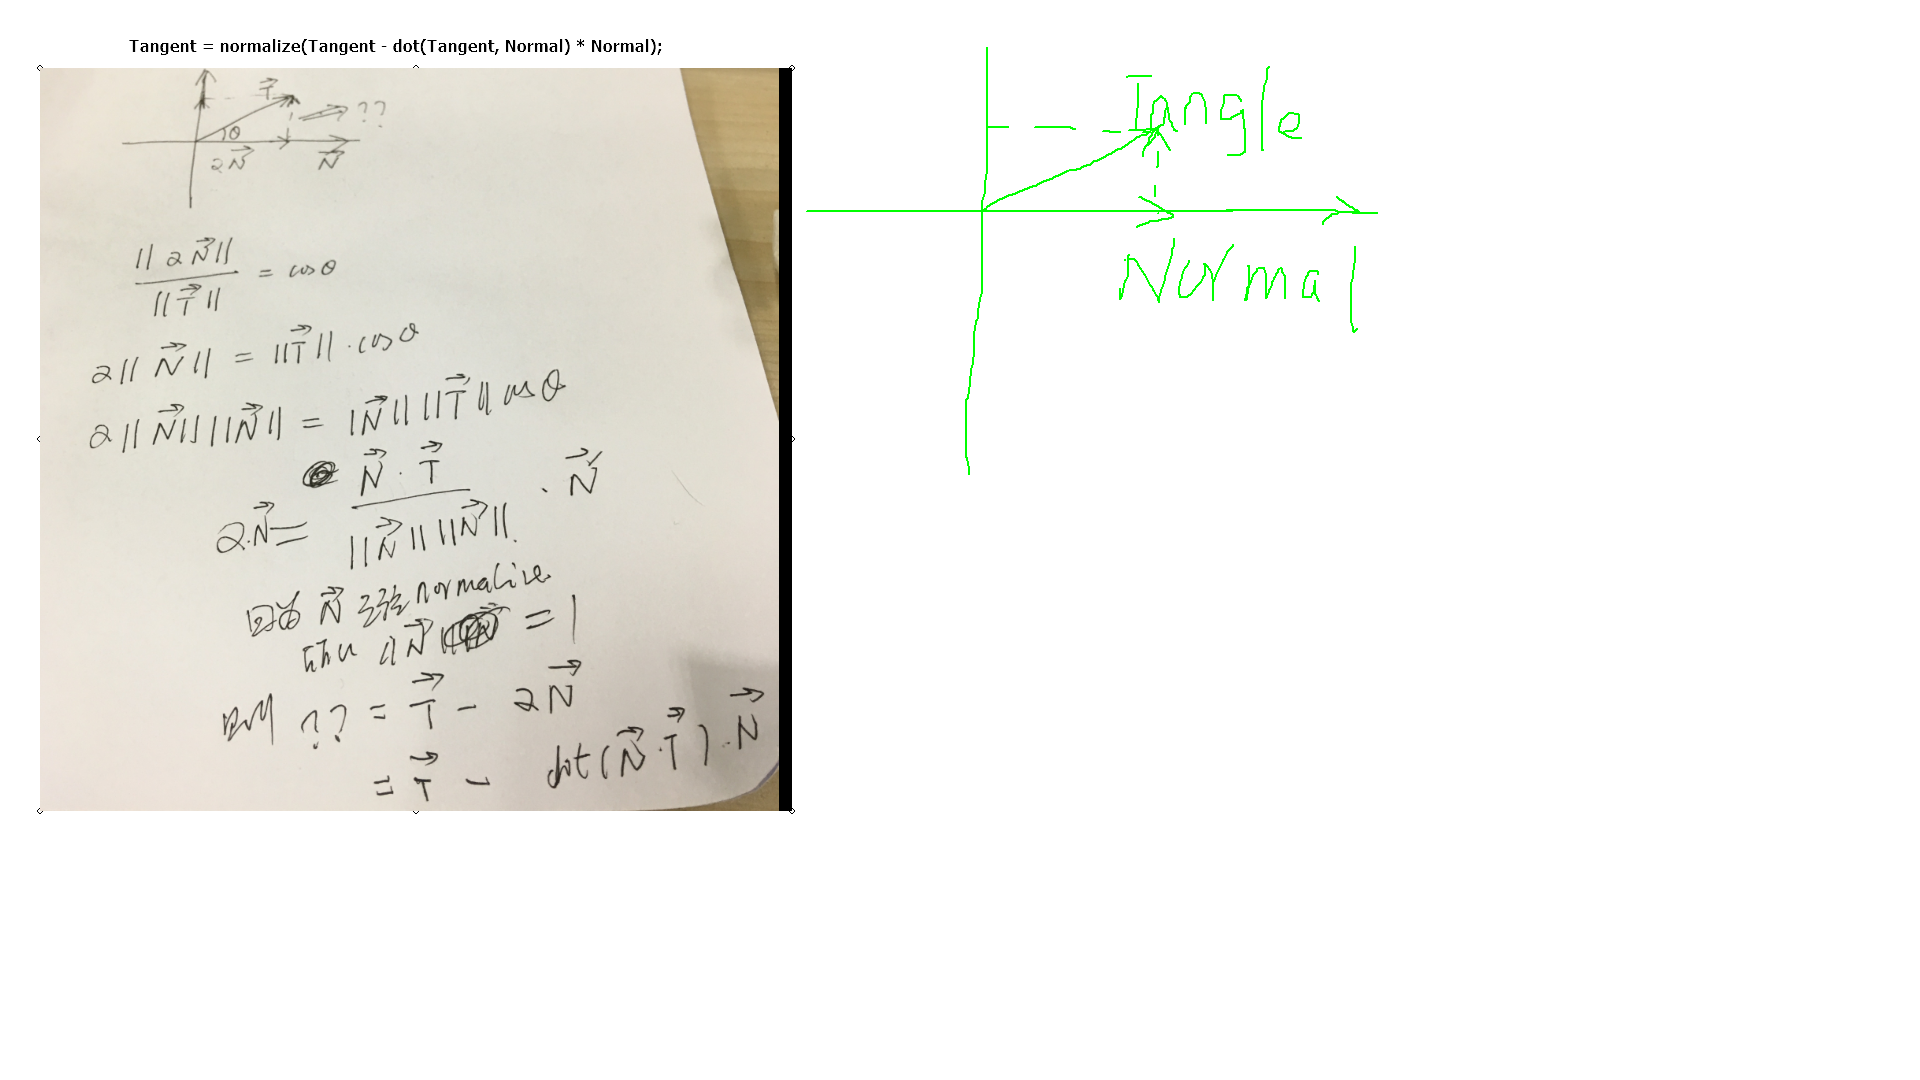 Tangent = normalize(Tangent - dot(Tangent, Normal) * Normal);
T ??
θ
2N N
||2N|| / ||T|| = cosθ
2||N|| = ||T||·cosθ
2||N||||N|| = |N||||T|| cosθ
2·N = N·T / ||N||||N|| · N
因为 N 已经 normalize
所以 ||N|| = 1
则 ?? = T - 2N
= T - dot(N·T)·N
Tangle
Normal